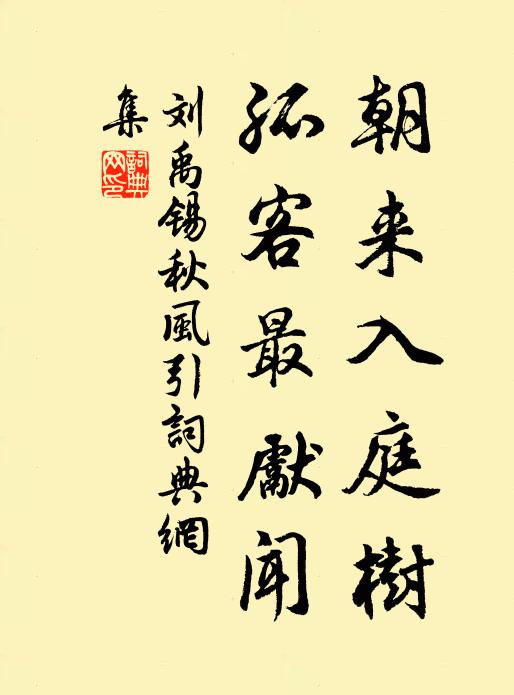 朝来入庭樹
孤客最獻聞
刘禹锡秋風引詞典網
集
詞典网印